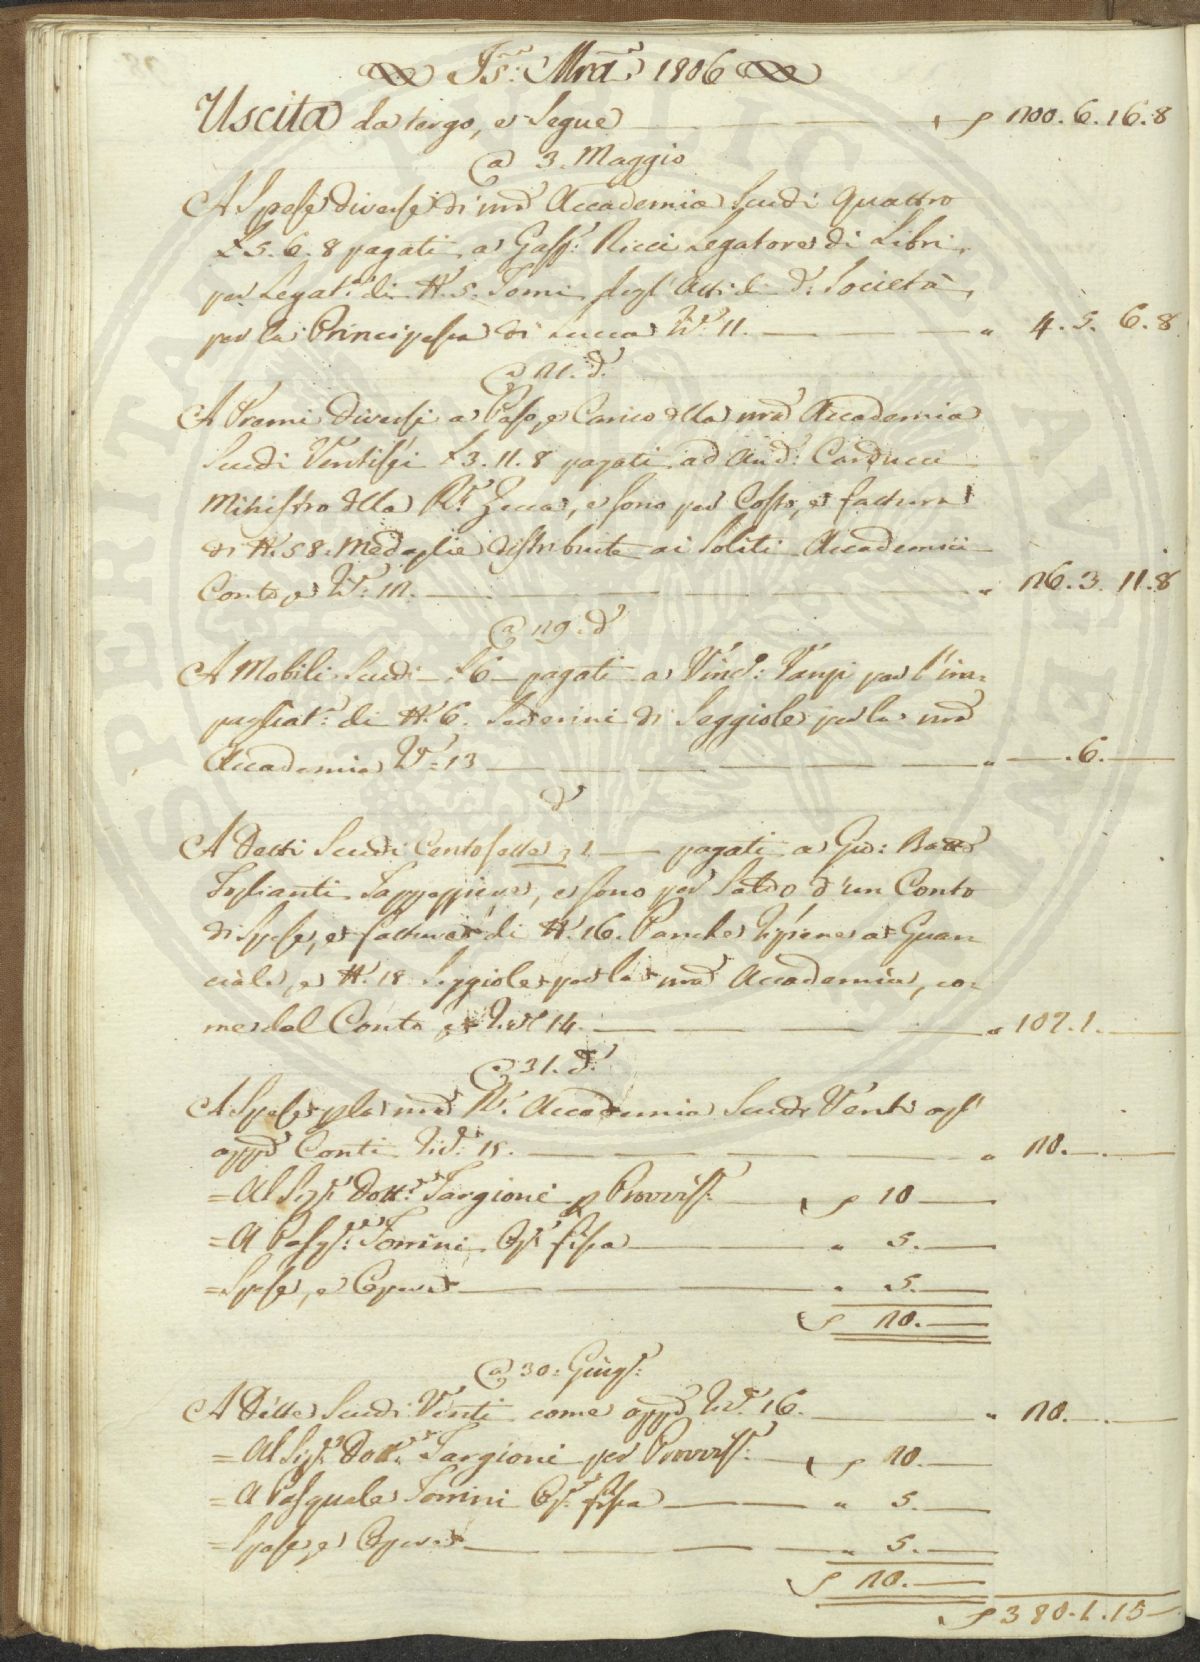 Js: Mrã 1806
Uscita da tergo, e Segue 200. 6. 16. 8
a 3. Maggio
A Spese diverse di nrã Accademia Scudi quattro
£ 5. 6. 8 pagati a Gasp: Ricci Legatore di Libri
per Legat: di N. 5. Tomi degl' Atti di d: Società
per la Principessa di Lucca N: 11. 4. 5. 6. 8
a 21. d:
A Premi Diversi a Peso, e Carico della nrã Accademia
Scudi Ventisei £ 3. 11. 8 pagati ad And: Carducci
Ministro della R: Zecca, e sono per Costo, e fattura
di N. 58. Medaglie distribuite ai Soliti Accademici
Conto, e N: 12. 26. 3. 11. 8
a 29. d
A Mobili Scudi — £ 6 — pagati a Vinc: Vanji per l'im-
pagliat: di N. 6. Sederini di Seggiole per la nrã
Accademia N: 13 — . 6. —
d
A Detti Scudi Centosette 1 — pagati a Gio: Batta
Foglianti Tappezziere, e sono per Saldo d'un Conto
di Spese, e fatture di N. 16. Panche Ripiene a Guan-
ciale, e N. 18 Seggiole per la nrã Accademia, co-
me dal Conto 14. 107. 1. —
a 31. d:
A Spese p la nrã R. Accademia Scudi Venti agl'
appd Conti 15. 20. —
= Al Sig: Dott: Targioni p Provvis: 10 —
= A Pasq: Torrini fissa 5. —
= Spese, e Opere 5. —
20. —
a 30: Giug:
A Dette Scudi Venti come appd 16. 20. —
= Al Sig: Dott: Targioni per Provvis: 10. —
= A Pasquale Torrini fissa 5. —
= Spese, e Opere 5. —
20. —
380. 1. 15 —